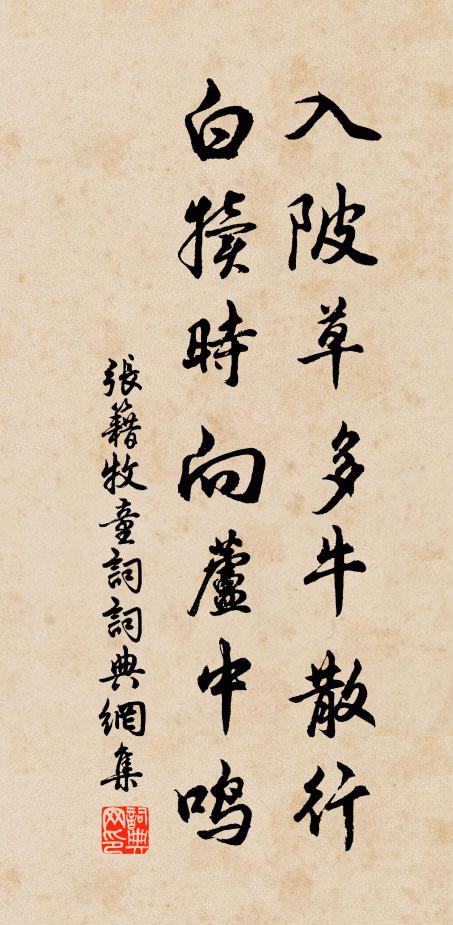 入陂草多牛散行
白犢時向蘆中鳴
張籍牧童詞詞典網集
詞典
网印